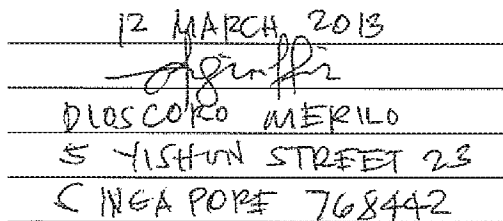 12 MARCH 2013
DIOSCORO MERILO
5 YISHUN STREET 23
SINGAPORE 768442